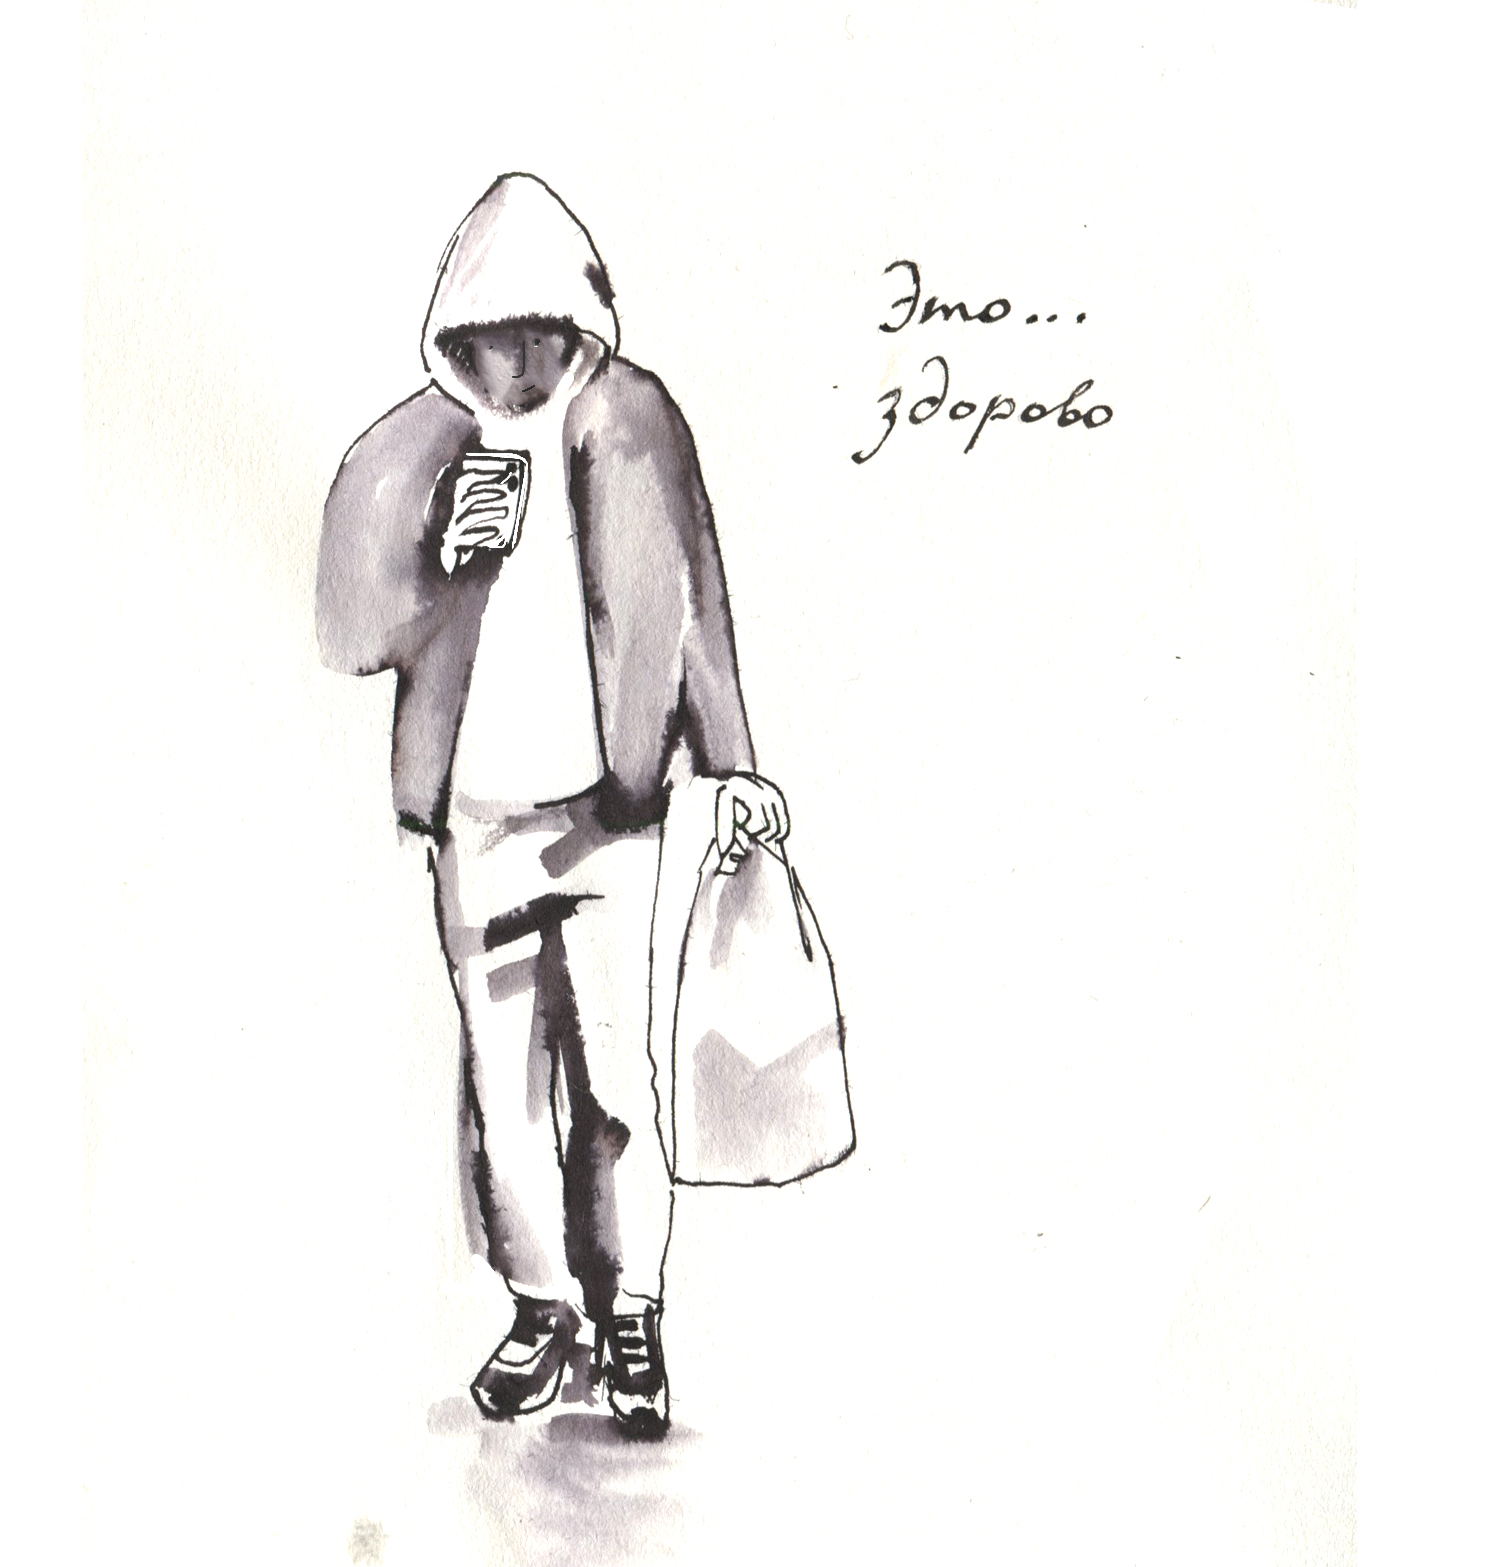 Это...
здорово